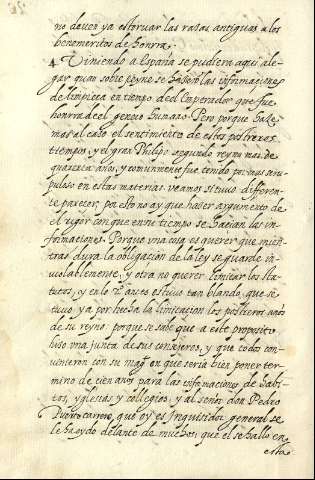 no deven ya estorvar las raças antiguas a los
benemeritos de honrar.
4. Viniendo a España se pudiera aqui ale-
gar quan sobre peyne se hacian las informaciones
de limpieça en tiempo del Emperador que fue
honra de el genero humano. Pero porque hace
mas al caso el sentimiento de estos postreros
tiempos, y el gran Philipo segundo reyno mas de
quarenta años, y comunmente fue tenido por mas scru-
puloso en estas materias veamos si tuvo differen-
te parecer, por esto no ay que hacer argumento de
el rigor con que en su tiempo se hacian las in-
formaciones. Porque una cosa es querer que mien-
tras dura la obligacion de la ley se guarde in-
violablemente, y otra no querer limitar los sta-
tutos, y en lo 2º antes estuvo tan blando, que es-
tuvo ya por hecha la limitacion los postreros años
de su reyno. porque se sabe que a este proposito
hiço una junta de sus consejeros, y que todos con-
vinieron con su magd en que seria bien poner ter-
mino de cien años para las informaciones de habi-
tos, yglesias, y collegios, y al señor don Pedro
Puertocarrero, que oy es Inquisidor general se
le ha oydo delante de muchos, que el se hallo en
esta